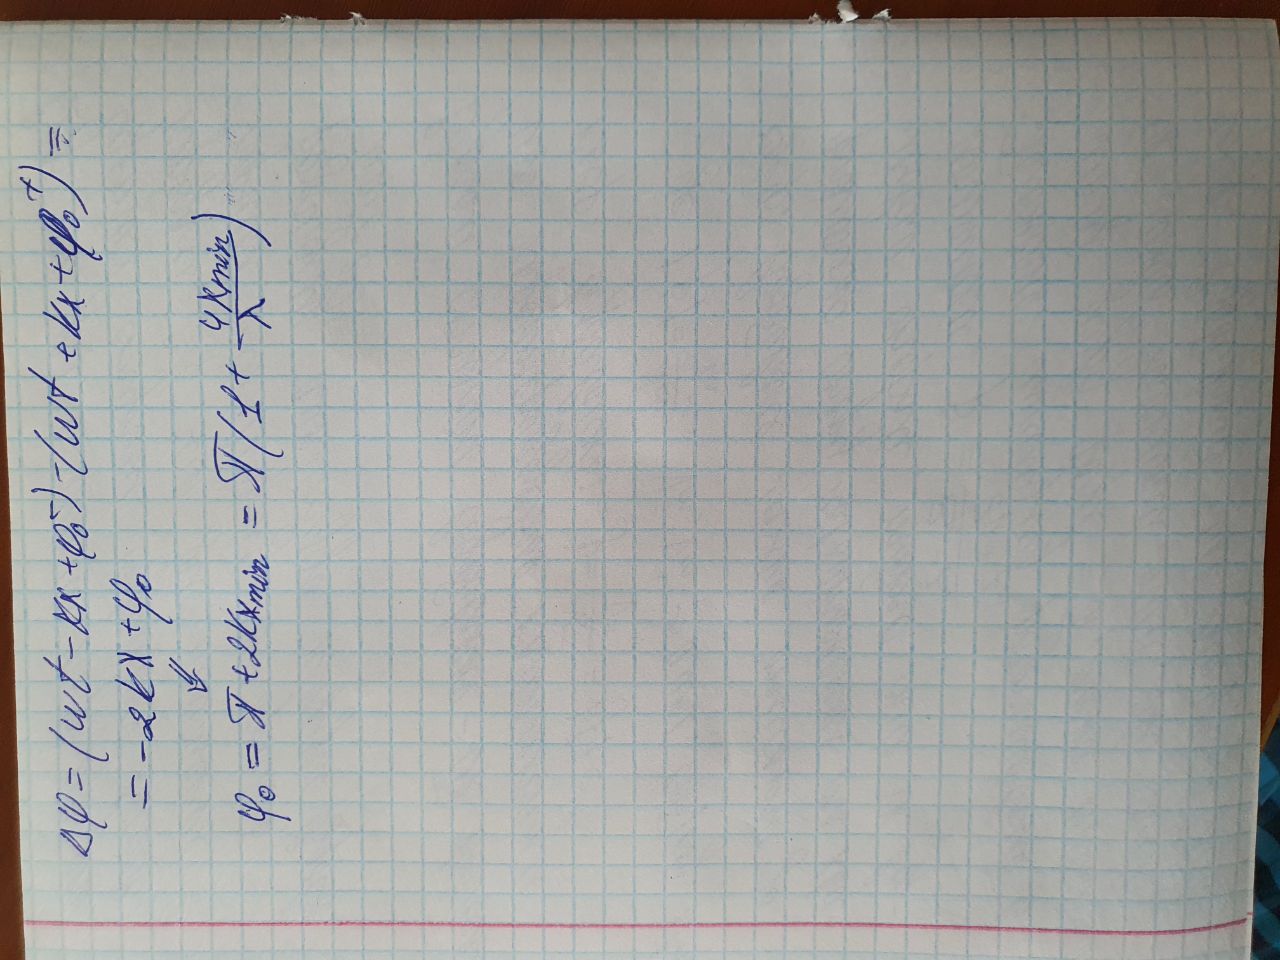 Δφ = (ωt − kx + φ₀⁻) − (ωt + kx + φ₀⁺) =
= −2kx + φ₀
⇓
φ₀ = π + 2kx min = π(1 + 4x min / λ)